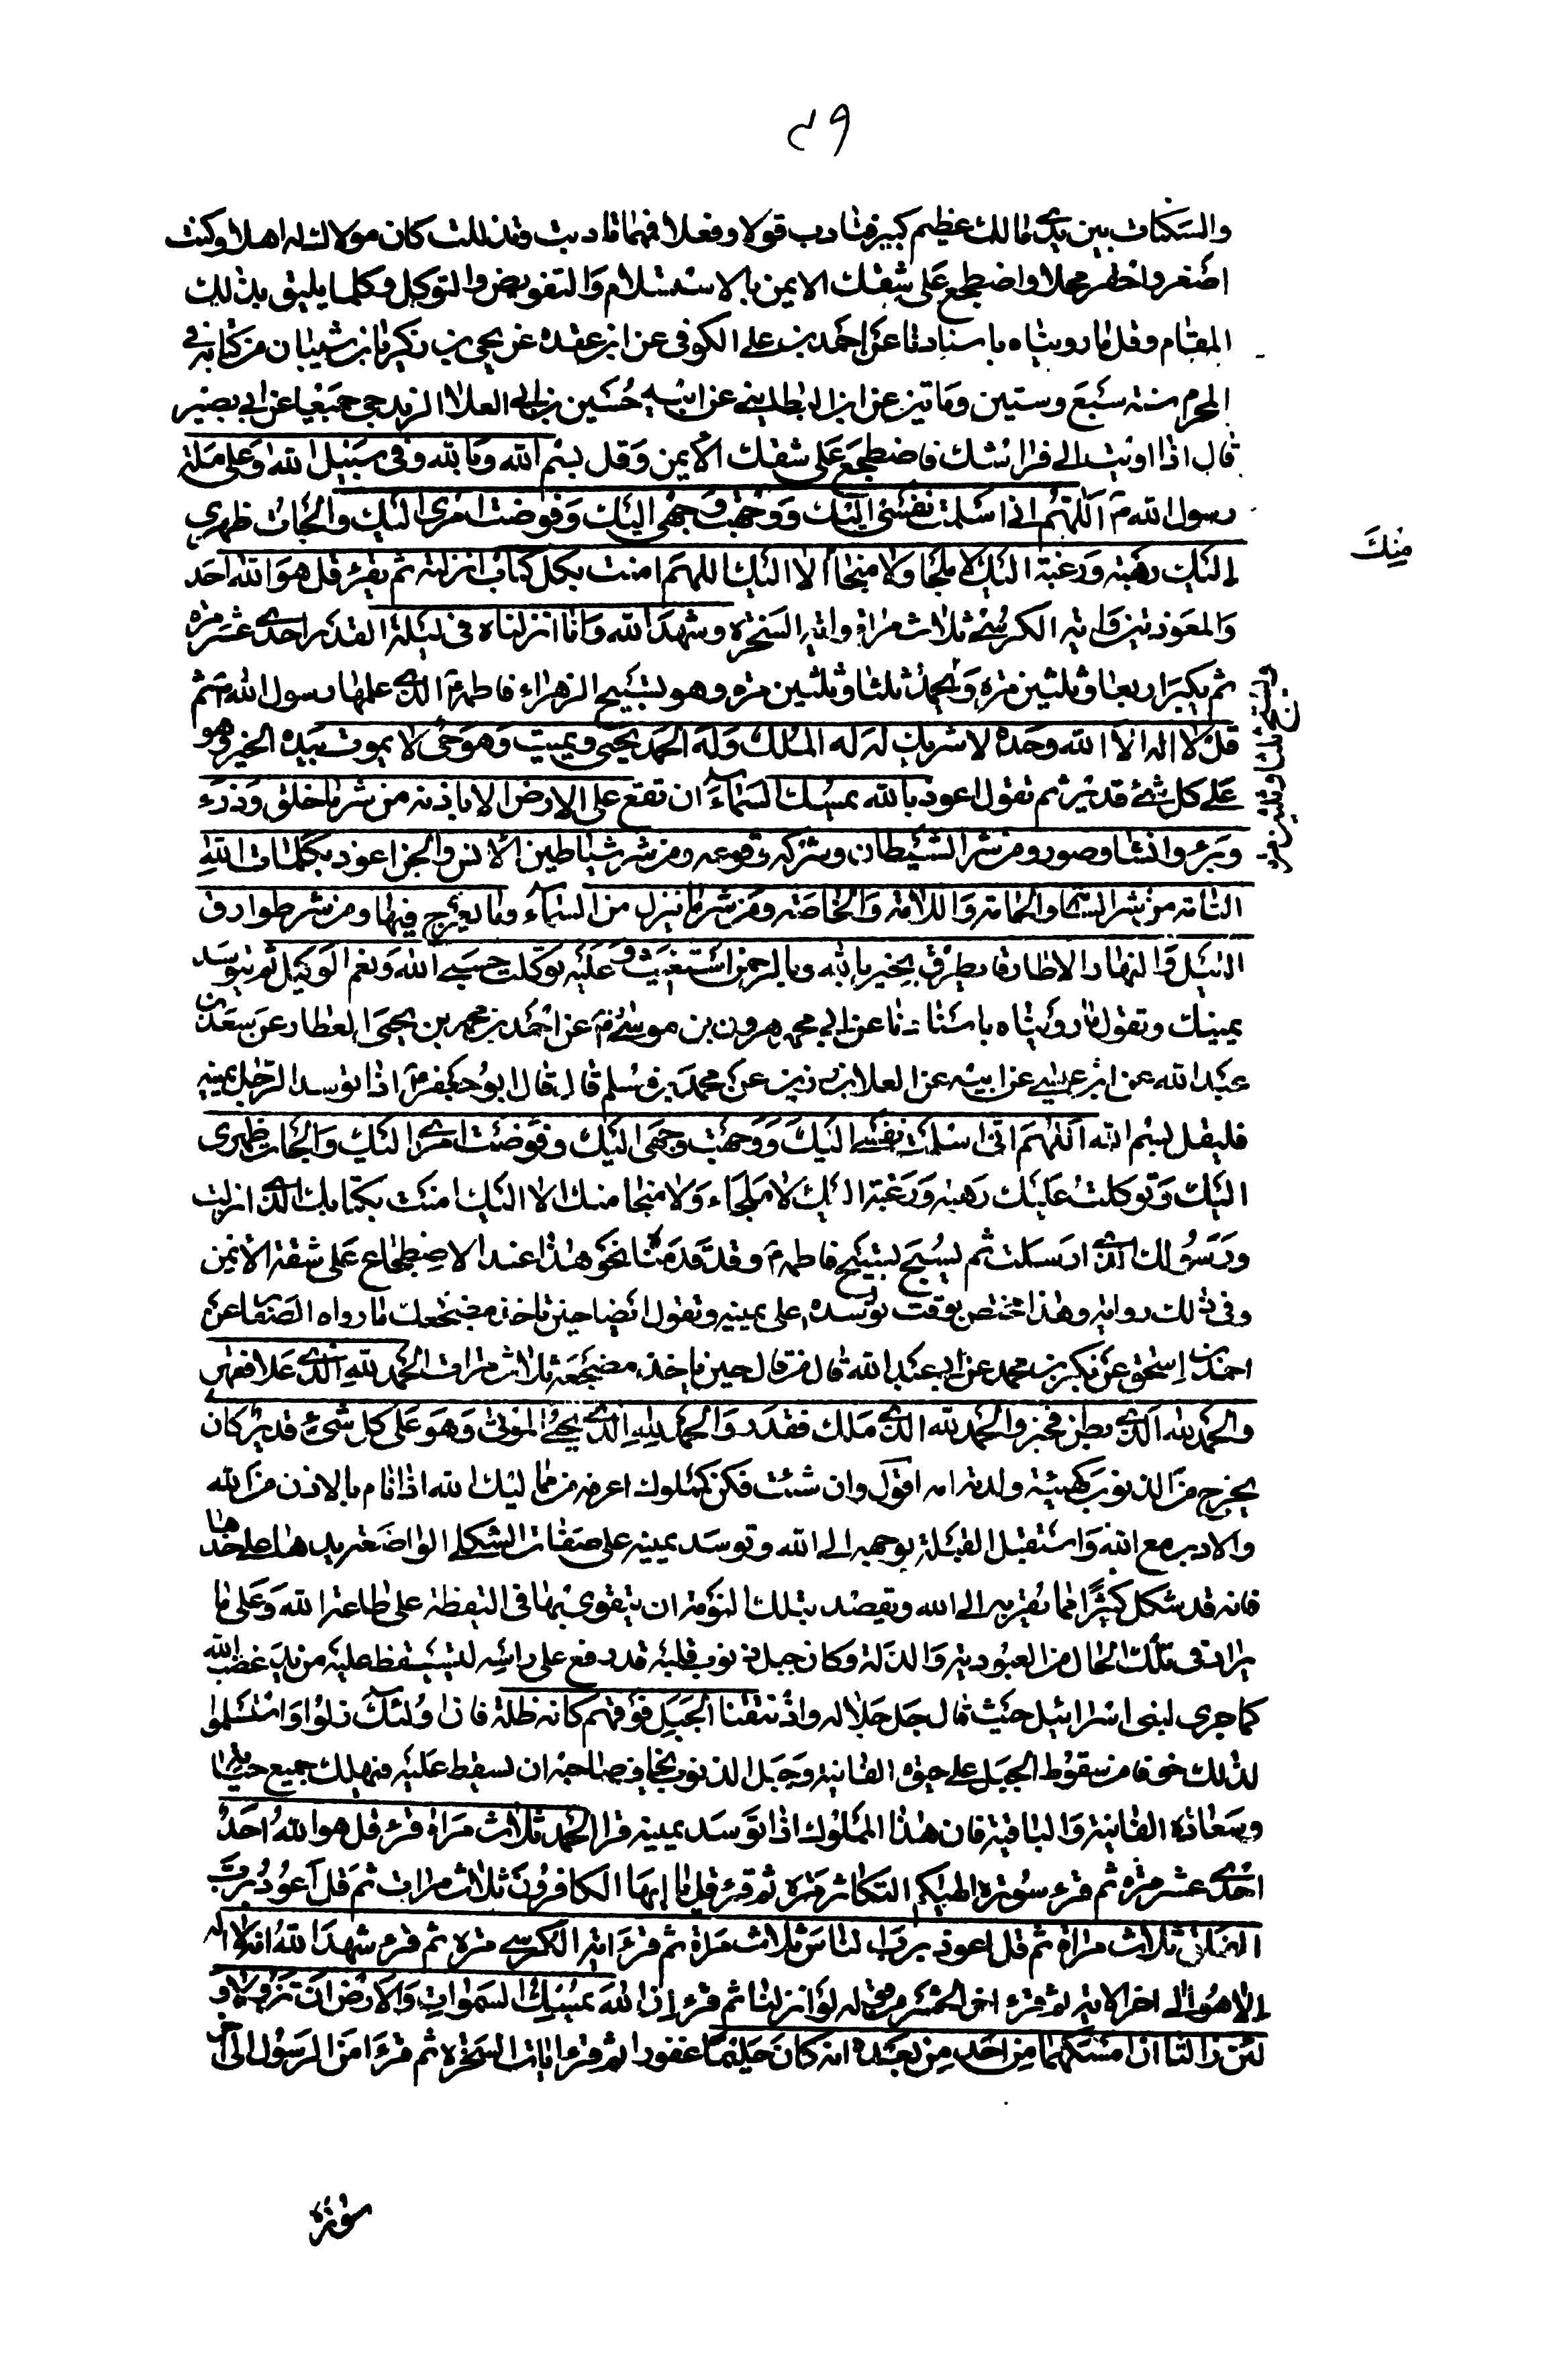 ٢٩
والسكنات بين يدي مالك عظيم كبير فتادب قولا وفعلا فمهما تادبت وتذللت كان مولاك له اهلا وكنت
اصغر واحقر محلا واضطجع على شقك الايمن بالاستسلام والتفويض والتوكل وكلما يليق بذلك
المقام وقل ما رويناه باسنادنا عن احمد بن علي الكوفي عن ابن عقدة عن يحيى بن زكريا بن شيبان من كتابه في
المحرم سنة سبع وستين ومأتين عن ابن البطايني عن ابيه حسين بن ابي العلا الزيدجي جميعا عن ابي بصير
قال اذا اويت الى فراشك فاضطجع على شقك الأيمن وقل بسم الله وبالله وفي سبيل الله وعلى ملة
رسول الله ص اللهم اني اسلمت نفسي اليك ووجهت وجهي اليك وفوضت امري اليك والجأت ظهري
اليك رهبة ورغبة اليك لا ملجا ولا منجا الا اليك اللهم امنت بكل كتاب انزلته ثم يقرء قل هو الله احد
منك
والمعوذتين واية الكرسي ثلاث مرات واية السخرة وشهد الله وانا انزلناه في ليلة القدر احدى عشر مرة
ثم يكبر اربعا وثلثين مرة ويحمد ثلثا وثلثين مرة وهو تسبيح الزهراء فاطمة ع الذي علمها رسول الله ص ثم
قل لا اله الا الله وحده لا شريك له له الملك وله الحمد يحيي ويميت وهو حي لا يموت بيده الخير وهو
على كل شئ قدير ثم تقول اعوذ بالله يمسك السماء ان تقع على الارض الا باذنه من شر ما خلق وذرء
وبرء وانشا وصور ومن شر الشيطان وشركه وقومه ومن شر شياطين الانس والجن اعوذ بكلمات الله
التامة من شر السامة والهامة واللامة والخاصة ومن شر ما ينزل من السماء وما يعرج فيها ومن شر طوارق
الليل والنهار الا طارقا يطرق بخير بالله وبالرحمن استغيث وعليه توكلت حسبي الله ونعم الوكيل ثم تتوسد
يمينك وتقول ما رويناه باسنادنا عن ابي محمد هرون بن موسى ره عن احمد بن محمد بن يحيى العطار عن سعد بن
عبد الله عن ابن عيسى عن ابيه عن العلا بن زين عن محمد بن مسلم قال قال ابو جعفر ع اذا توسد الرجل يمينه
فليقل بسم الله اللهم اني اسلمت نفسي اليك ووجهت وجهي اليك وفوضت امري اليك والجات ظهري
اليك وتوكلت عليك رهبة ورغبة اليك لا ملجاء ولا منجا منك الا اليك امنت بكتابك الذي انزلت
ورسولك الذي ارسلت ثم يسبح تسبيح فاطمة ع وقد قدمنا نحو هذا عند الاضطجاع على شقه الايمن
وفي ذلك رواية وهذا مختص بوقت توسده على يمينه وتقول ايضا حين تاخذ مضجعك ما رواه الصفا عن
احمد بن اسحق عن بكر بن محمد عن ابي عبد الله قال من قال حين ياخذ مضجعه ثلاث مرات الحمد لله الذي علا فقهر
والحمد لله الذي بطن فخبر والحمد لله الذي ملك فقدر والحمد لله الذي يحيي الموتى وهو على كل شئ قدير كان
يخرج من الذنوب كهيئة ولدته امه اقول وان شئت فكن كمملوك اعرفه من مماليك الله اذا نام بالاذن من الله
والادب مع الله واستقبل القبلة بوجهه الى الله وتوسد يمينه على صفات الثكلى الواضعة يدها على خدها
فانه قد ثكل كثيرا مما يقربه الى الله ويقصد بتلك النومة ان يتقوى بها في اليقظة على طاعة الله وعلى ما
يراد في تلك الحال من العبودية والذلة وكان جبل ذنوب قلبه قد رفع على راسه ليسقط عليه من يد غضب الله
كما جرى لبني اسرائيل حيث قال جل جلاله واذ نتقنا الجبل فوقهم كانه ظلة فان اولئك ذلوا واستسلموا
لذلك خوفا من سقوط الجبل على حيوة الفانية وجبل الذنوب يخاف صاحبه ان يسقط عليه فيهلك جميع حياته
وسعادته الفانية والباقية فان هذا المملوك اذا توسد يمينه قرا الحمد ثلاث مرات وقرء قل هو الله احد
احدى عشر مرة ثم قرء سورة الهيكم التكاثر مرة ثم قرء قل يا ايها الكافرون ثلاث مرات ثم قل اعوذ برب
الفلق ثلاث مرات ثم قل اعوذ برب الناس ثلاث مرات ثم قرء اية الكرسي مرة ثم قرء شهد الله انه لا اله
الا هو الى اخر الاية ثم قرء اخر الحشر من قوله لو انزلنا ثم قرء ان الله يمسك السموات والارض ان تزولا و
لئن زالتا ان امسكهما من احد من بعده انه كان حليما غفورا ثم قرء ايات السخرة ثم قرء امن الرسول الى اخر
سورة